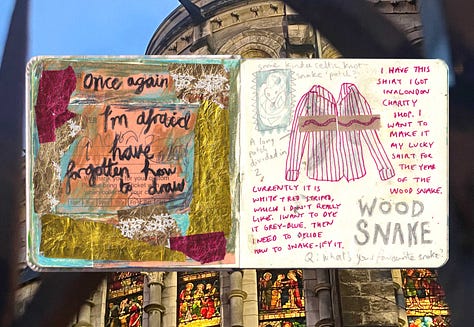 Once again
I'm afraid
I have
forgotten how
to draw
some kinda celtic knot
snake patch?
A long
patch
divided in
2
I HAVE THIS
SHIRT I GOT
IN A LONDON
CHARITY
SHOP. I
WANT TO
MAKE IT
MY LUCKY
SHIRT FOR
THE YEAR
OF THE
WOOD SNAKE.
CURRENTLY IT IS
WHITE + RED STRIPED,
WHICH I DON'T REALLY
LIKE. I WANT TO DYE
IT GREY-BLUE, THEN
I NEED TO DECIDE
HOW TO SNAKE-IFY IT.
WOOD
SNAKE
Q: What's your favourite snake?